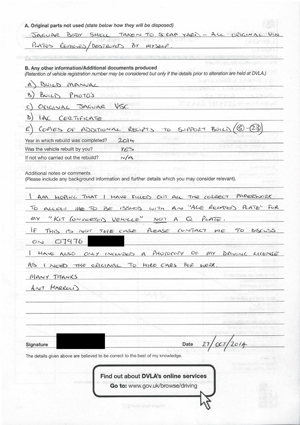 A. Original parts not used (state below how they will be disposed)
JAGUAR BODY SHELL TAKEN TO SCRAP YARD - ALL ORIGINAL VIN
PLATES REMOVED/DESTROYED BY MYSELF.
B. Any other information/Additional documents produced
(Retention of vehicle registration number may be considered but only if the details prior to alteration are held at DVLA.)
A) BUILD MANUAL
B) BUILD PHOTOS
C) ORIGINAL JAGUAR V5C
D) IAC CERTIFICATE
E) COPIES OF ADDITIONAL RECEIPTS TO SUPPORT BUILD
Year in which rebuild was completed? 2014
Was the vehicle rebuilt by you? YES
If not who carried out the rebuild? N/A
Additional notes or comments
(Please include any background information and further details which you may consider relevant).
I AM HOPING THAT I HAVE FILLED OUT ALL THE CORRECT PAPERWORK
TO ALLOW ME TO BE ISSUED WITH AN "AGE RELATED PLATE" FOR
MY "KIT CONVERTED VEHICLE" NOT A Q PLATE.
IF THIS IS NOT THE CASE PLEASE CONTACT ME TO DISCUSS
ON 07976
I HAVE ALSO ONLY INCLUDED A PHOTOCOPY OF MY DRIVING LICENSE
AS I NEED THE ORIGINAL TO HIRE CARS FOR WORK.
MANY THANKS
Signature
Date 27/OCT/2014
The details given above are believed to be correct to the best of my knowledge.
Find out about DVLA's online services
Go to: www.gov.uk/browse/driving